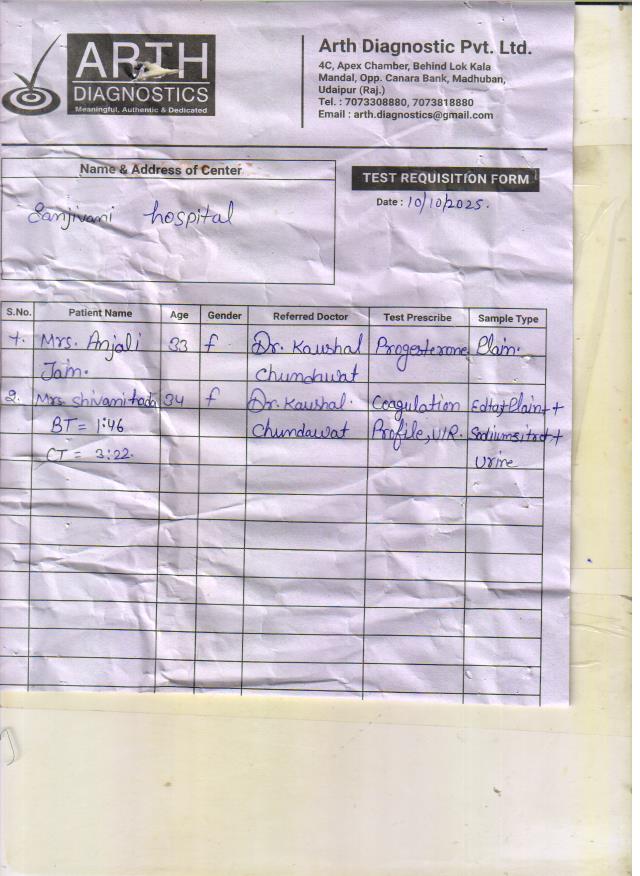 ARTH
DIAGNOSTICS
Meaningful, Authentic & Dedicated
Arth Diagnostic Pvt. Ltd.
4C, Apex Chamber, Behind Lok Kala
Mandal, Opp. Canara Bank, Madhuban,
Udaipur (Raj.)
Tel. : 7073308880, 7073818880
Email : arth.diagnostics@gmail.com
Name & Address of Center
TEST REQUISITION FORM
Date : 10/10/2025.
Sanjivani hospital
S.No. Patient Name Age Gender Referred Doctor Test Prescribe Sample Type
1. Mrs. Anjali 33 f Dr. Kaushal Progesterone Plain.
Jain. Chundawat
2. Mrs. Shivani 34 f Dr. Kaushal. Coagulation Edta+Plain++
BT = 1:46 Chundawat Profile, U/R. Sodiumsitrat+
CT = 3:22. Urine